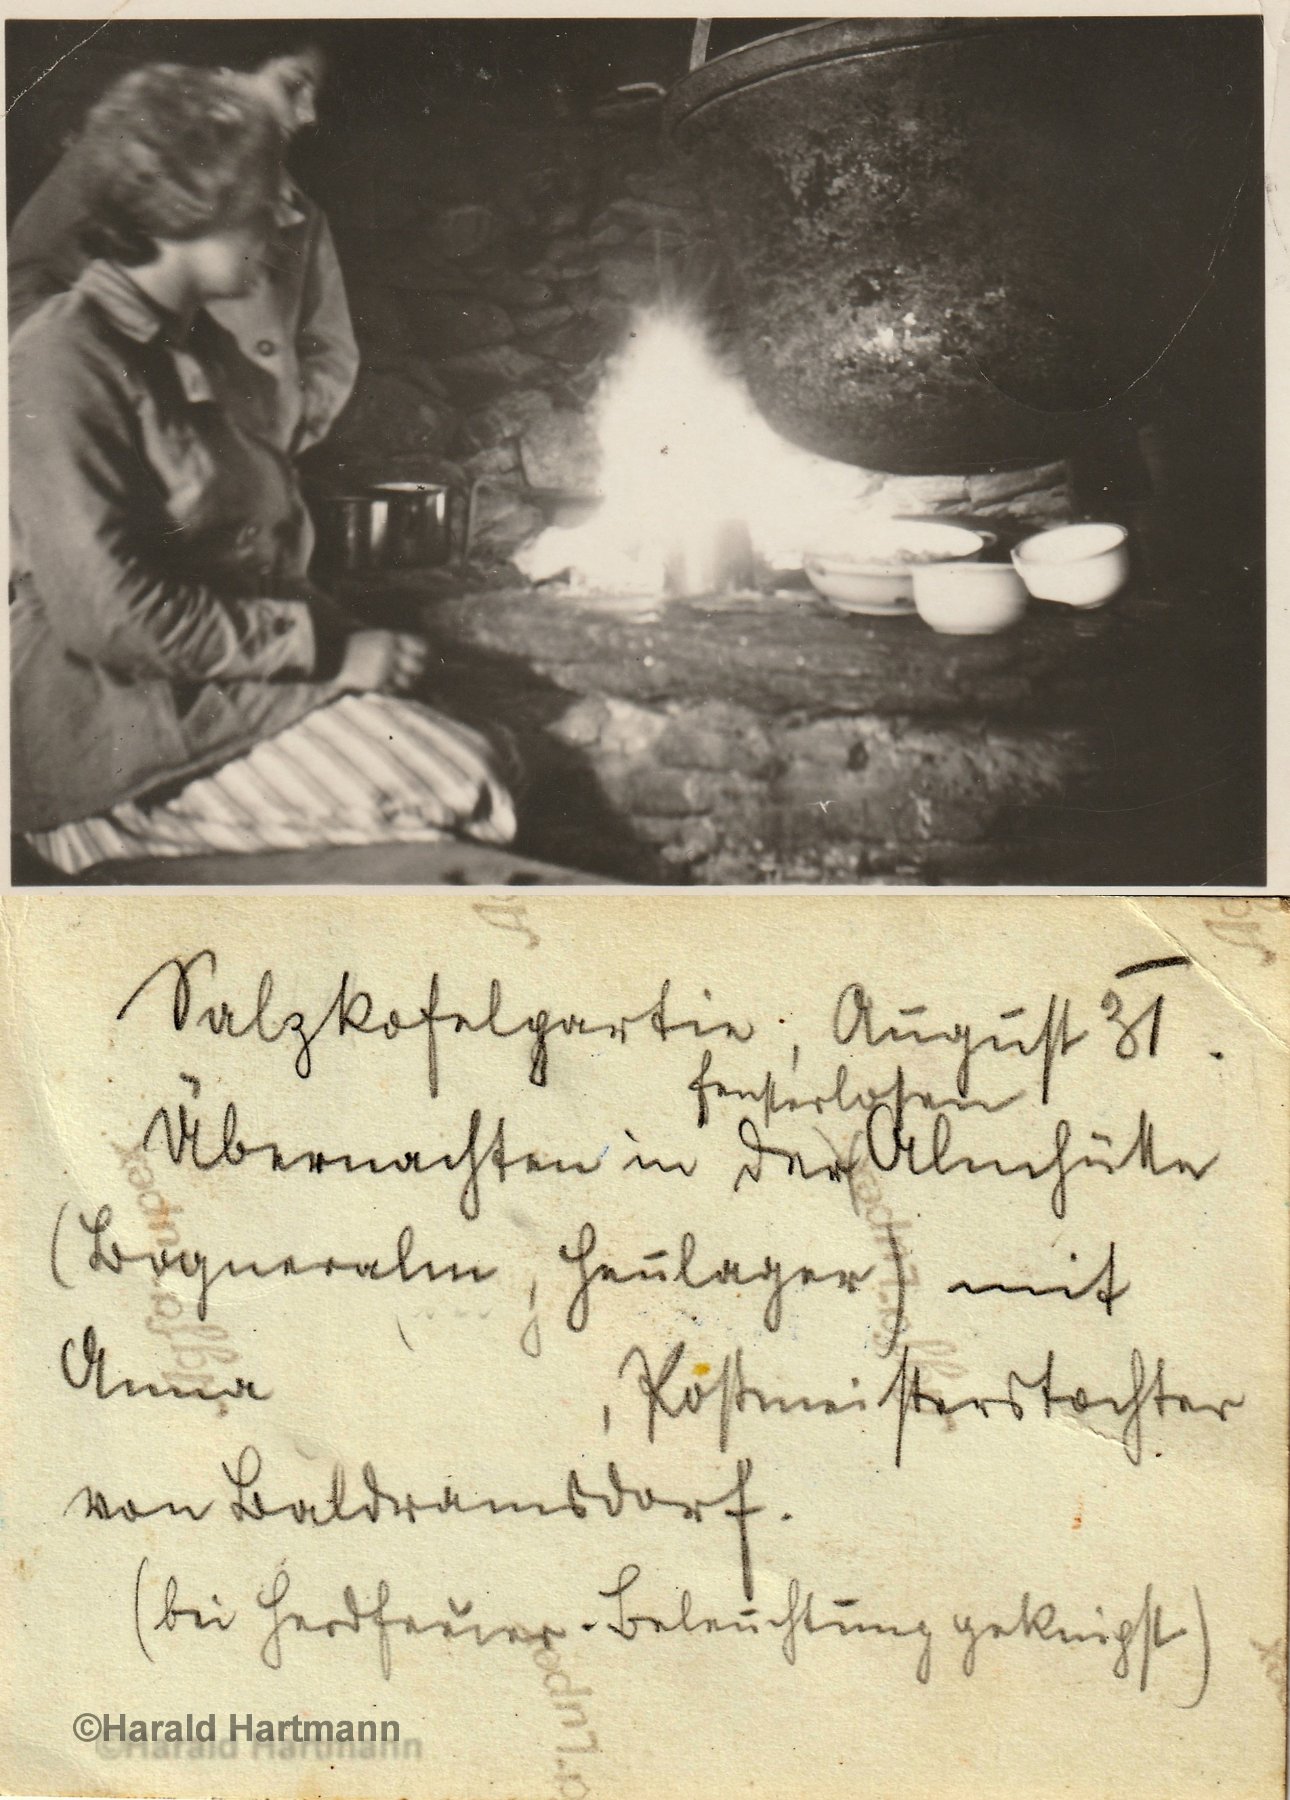 Salzkofelpartie, August 31.
fensterlosen
Übernachten in der Almhütte
(Bogneralm, Heulager) mit
Anna , Postmeisterstochter
von Baldramsdorf.
(bei Herdfeuer-Beleuchtung geknipst)
©Harald Hartmann